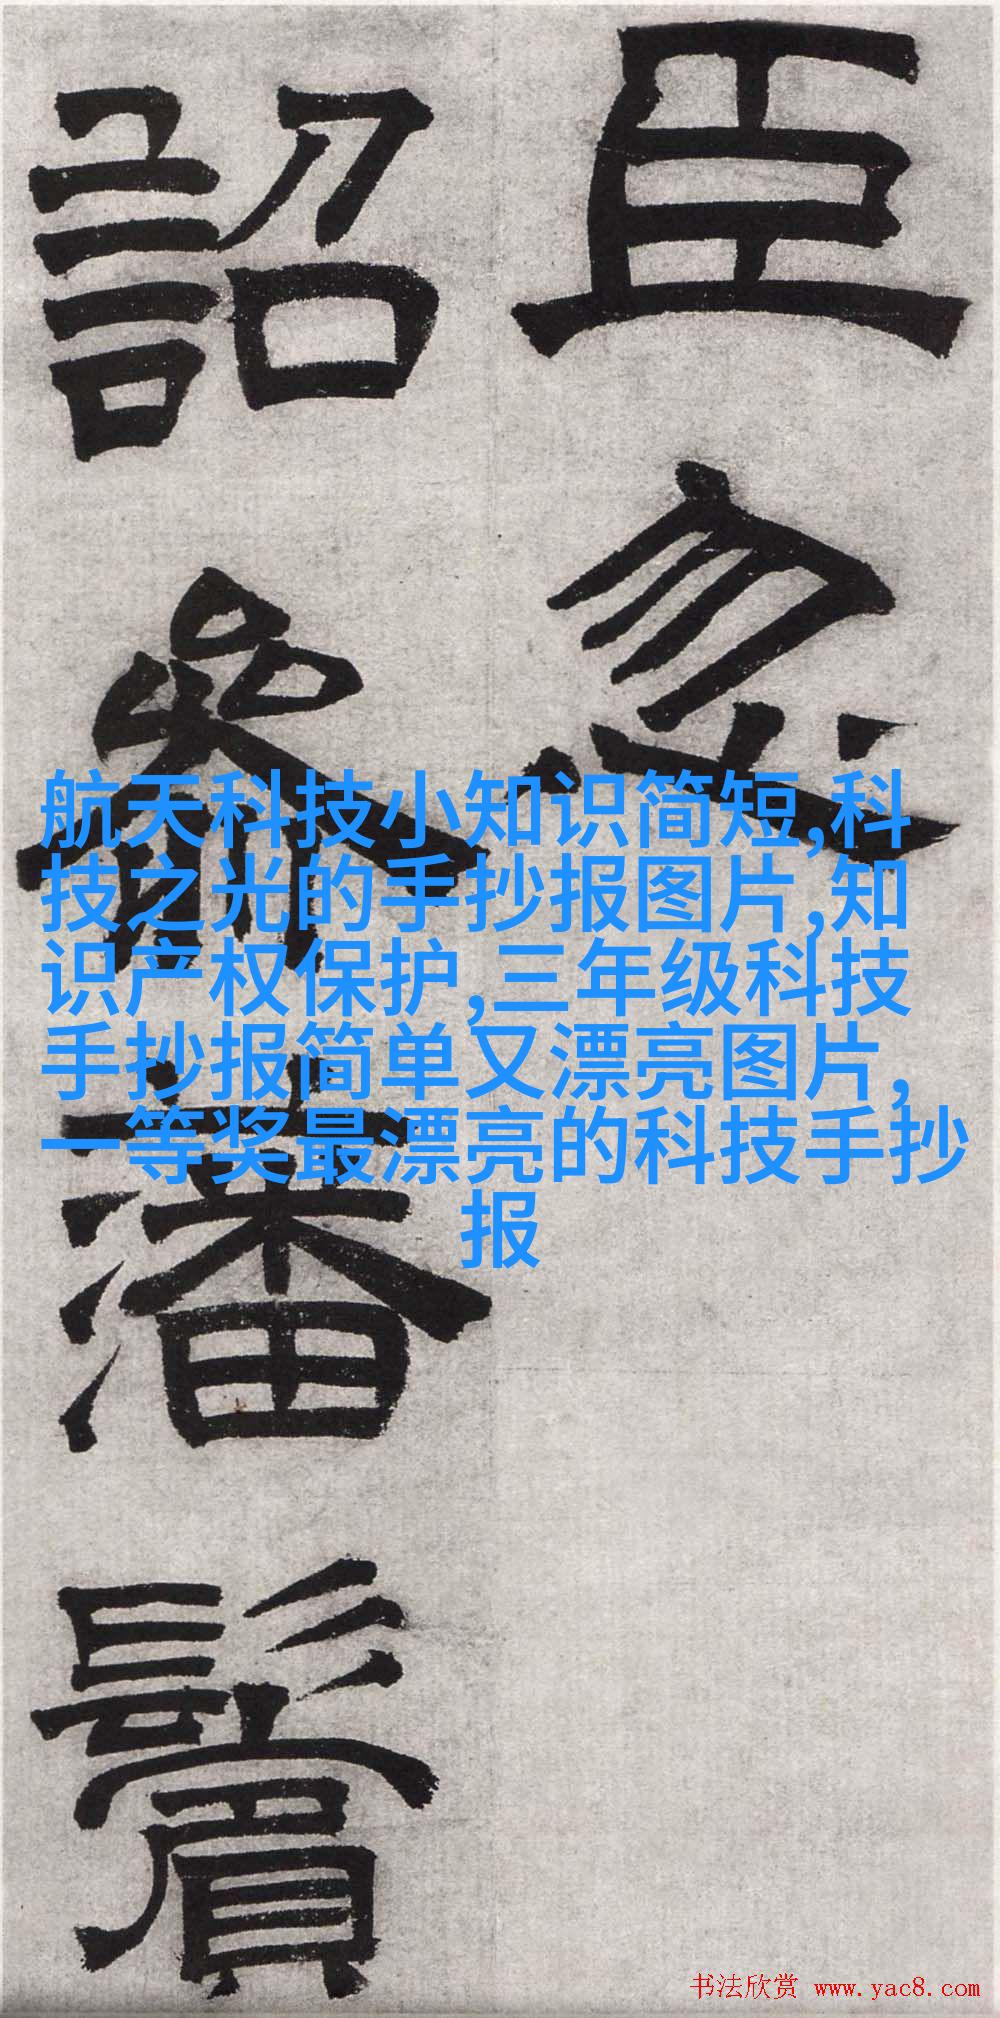 臣忽
詔參藩鬢
航天科技小知识简短,科
技之光的手抄报图片,知
识产权保护,三年级科技
手抄报简单又漂亮图片,
一等奖最漂亮的科技手抄
报
书法欣赏 www.yac8.com